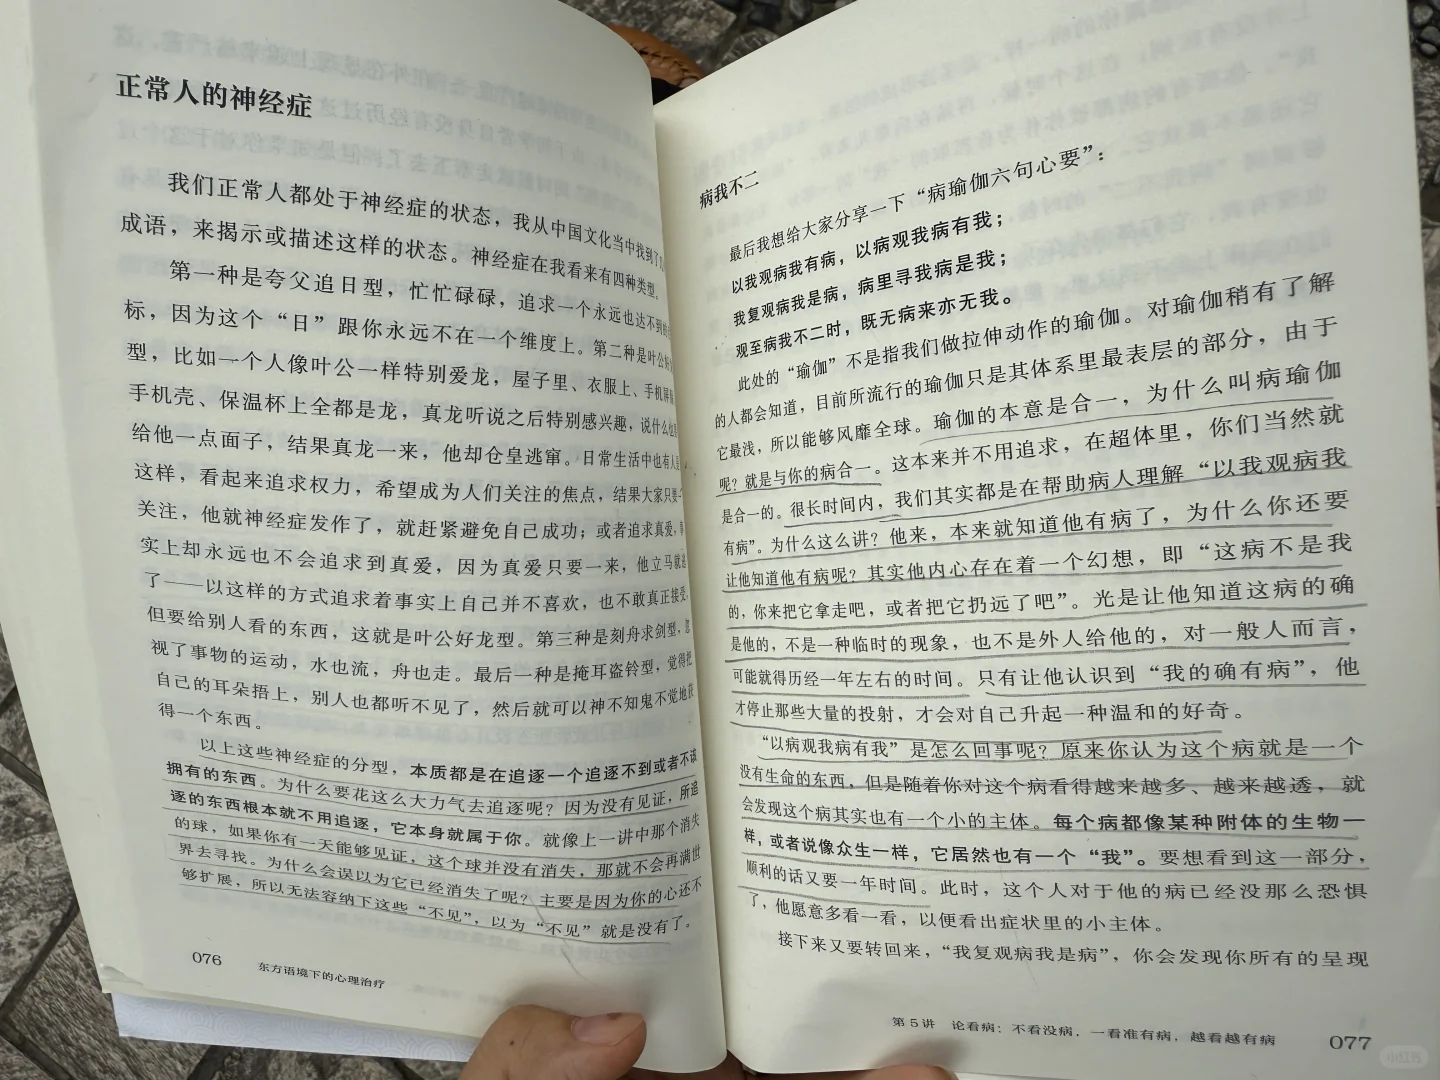 正常人的神经症
我们正常人都处于神经症的状态，我从中国文化当中找到了
成语，来揭示或描述这样的状态。神经症在我看来有四种类型。
第一种是夸父追日型，忙忙碌碌，追求一个永远也达不到的
标，因为这个“日”跟你永远不在一个维度上。第二种是叶公好
型，比如一个人像叶公一样特别爱龙，屋子里、衣服上、手机屏
手机壳、保温杯上全都是龙，真龙听说之后特别感兴趣，说什么也
给他一点面子，结果真龙一来，他却仓皇逃窜。日常生活中也有人
这样，看起来追求权力，希望成为人们关注的焦点，结果大家只要一
关注，他就神经症发作了，就赶紧避免自己成功；或者追求真爱，事
实上却永远也不会追求到真爱，因为真爱只要一来，他立马就
了——以这样的方式追求着事实上自己并不喜欢，也不敢真正接受，
但要给别人看的东西，这就是叶公好龙型。第三种是刻舟求剑型，忽
视了事物的运动，水也流，舟也走。最后一种是掩耳盗铃型，觉得把
自己的耳朵捂上，别人也都听不见了，然后就可以神不知鬼不觉地获
得一个东西。
以上这些神经症的分型，本质都是在追逐一个追逐不到或者不该
拥有的东西。为什么要花这么大力气去追逐呢？因为没有见证，所追
逐的东西根本就不用追逐，它本身就属于你。就像上一讲中那个消失
的球，如果你有一天能够见证，这个球并没有消失，那就不会再满世
界去寻找。为什么会误以为它已经消失了呢？主要是因为你的心还不
够扩展，所以无法容纳下这些“不见”，以为“不见”就是没有了。
076 东方语境下的心理治疗
病我不二
最后我想给大家分享一下“病瑜伽六句心要”：
以我观病我有病，以病观我病有我；
我复观病我是病，病里寻我病是我；
观至病我不二时，既无病来亦无我。
此处的“瑜伽”不是指我们做拉伸动作的瑜伽。对瑜伽稍有了解
的人都会知道，目前所流行的瑜伽只是其体系里最表层的部分，由于
它最浅，所以能够风靡全球。瑜伽的本意是合一，为什么叫病瑜伽
呢？就是与你的病合一。这本来并不用追求，在超体里，你们当然就
是合一的。很长时间内，我们其实都是在帮助病人理解“以我观病我
有病”。为什么这么讲？他来，本来就知道他有病了，为什么你还要
让他知道他有病呢？其实他内心存在着一个幻想，即“这病不是我
的，你来把它拿走吧，或者把它扔远了吧”。光是让他知道这病的确
是他的，不是一种临时的现象，也不是外人给他的，对一般人而言，
可能就得历经一年左右的时间。只有让他认识到“我的确有病”，他
才停止那些大量的投射，才会对自己升起一种温和的好奇。
“以病观我病有我”是怎么回事呢？原来你认为这个病就是一个
没有生命的东西，但是随着你对这个病看得越来越多、越来越透，就
会发现这个病其实也有一个小的主体。每个病都像某种附体的生物一
样，或者说像众生一样，它居然也有一个“我”。要想看到这一部分，
顺利的话又要一年时间。此时，这个人对于他的病已经没那么恐惧
了，他愿意多看一看，以便看出症状里的小主体。
接下来又要转回来，“我复观病我是病”，你会发现你所有的呈现
第5讲 论看病：不看没病，一看准有病，越看越有病 077
小红书